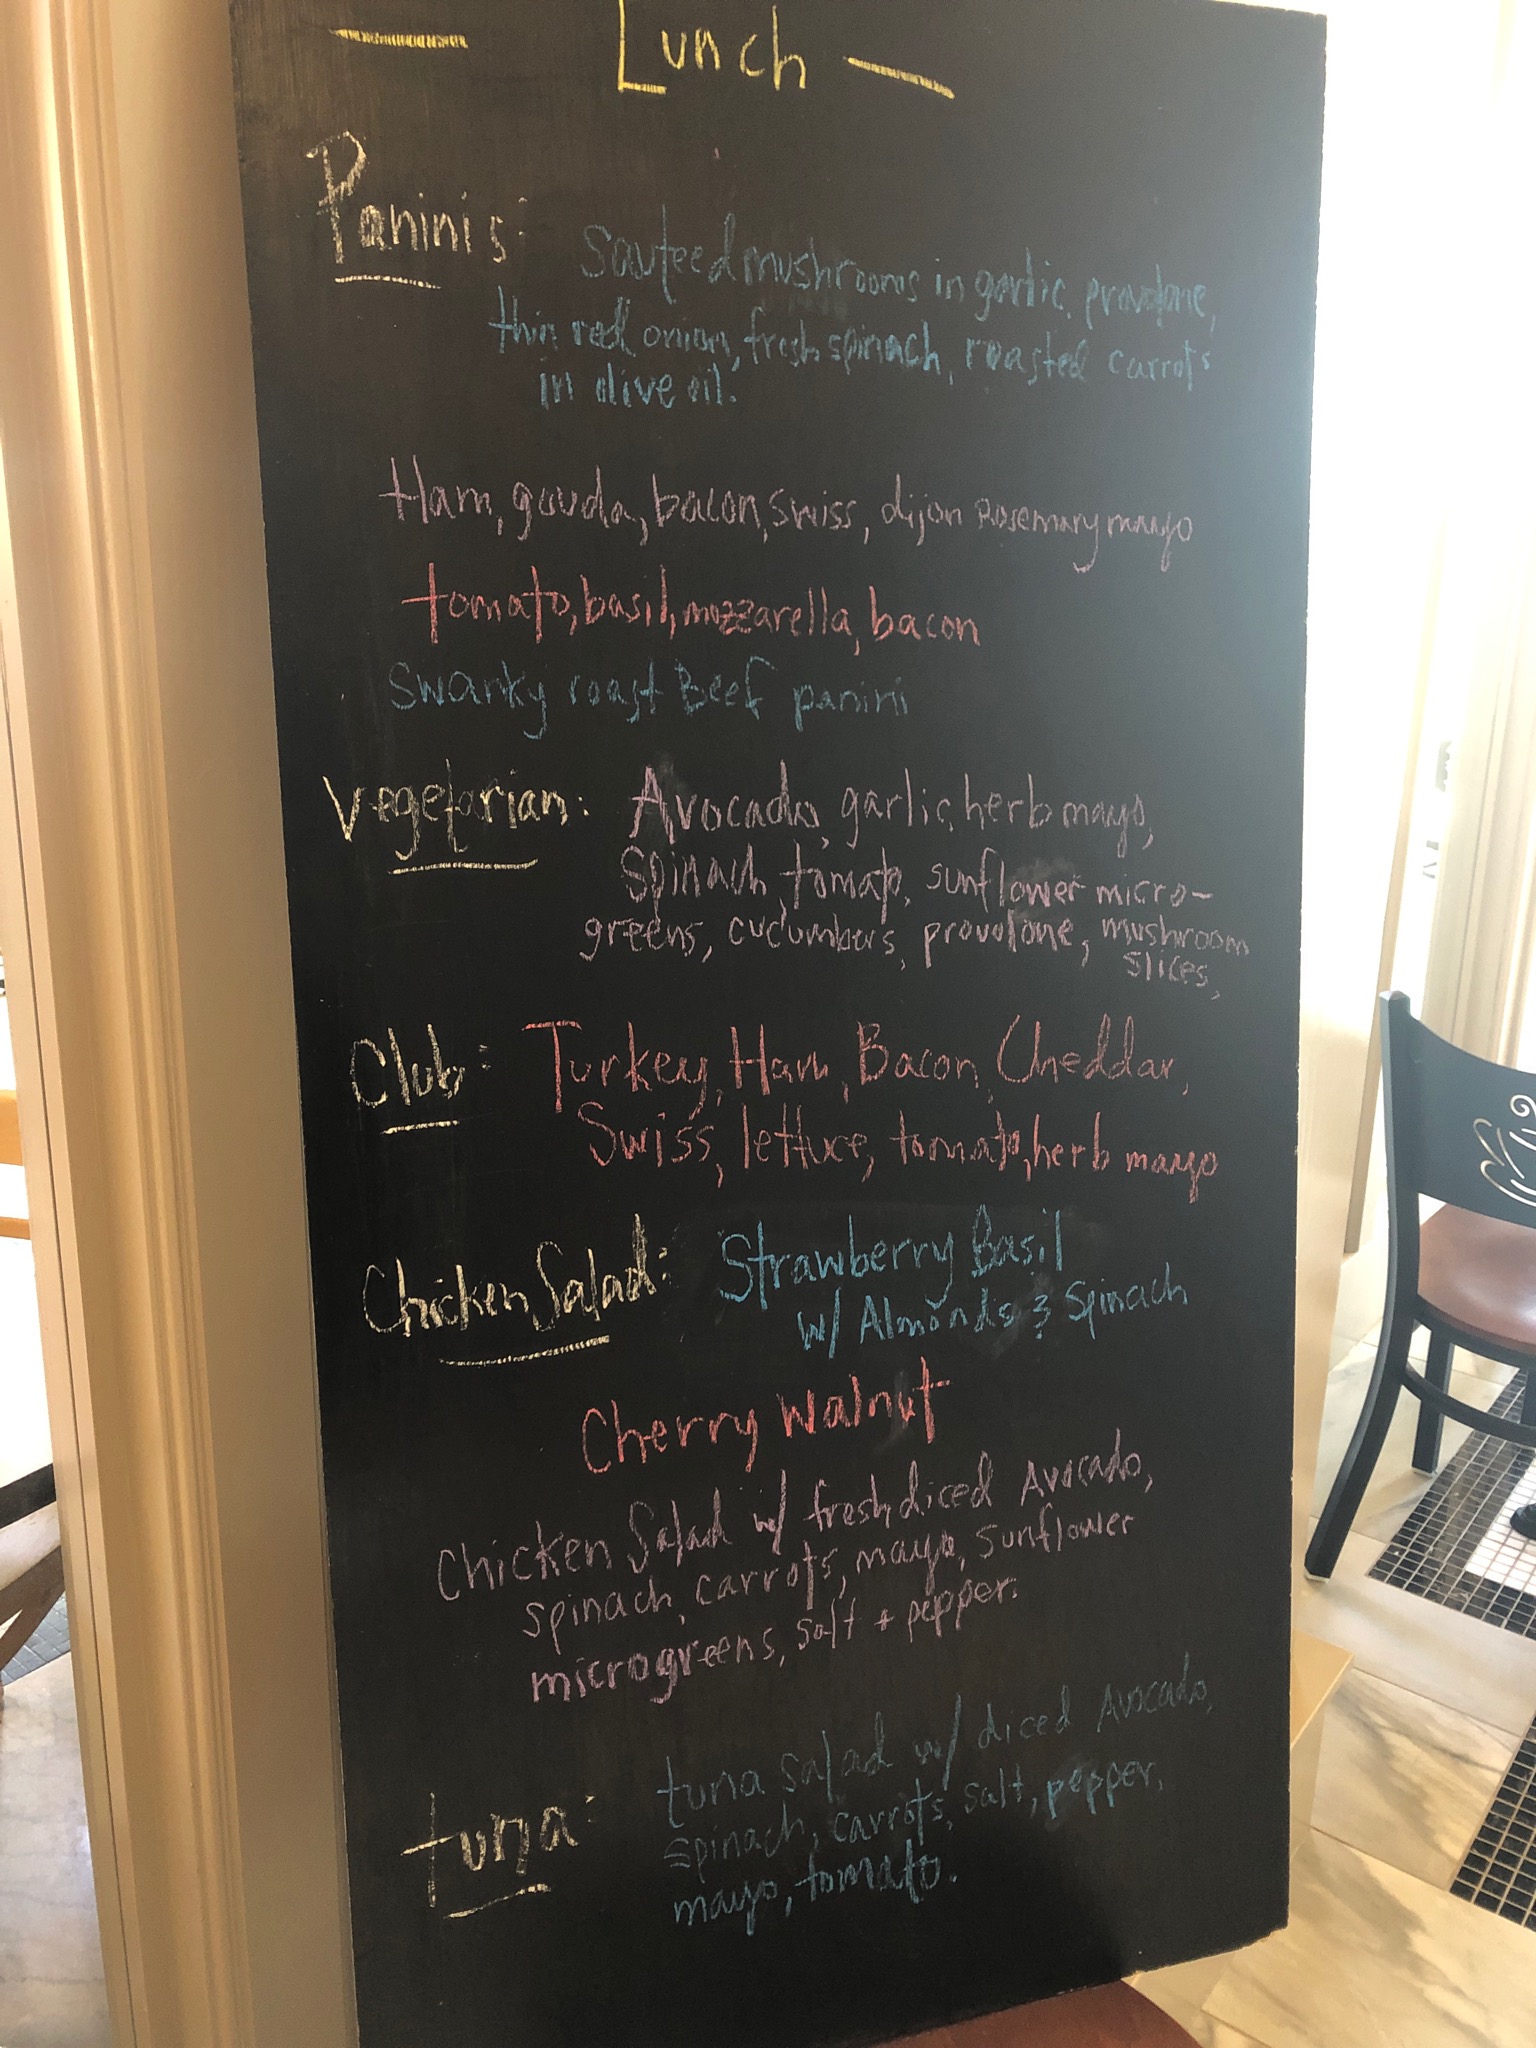 — Lunch —
Paninis:
Sauteed mushrooms in garlic, provolone,
thin red onion, fresh spinach, roasted carrots
in olive oil.
Ham, gouda, bacon, swiss, dijon rosemary mayo
tomato, basil, mozzarella, bacon
Swanky roast Beef panini
Vegetarian: Avocado, garlic, herb mayo,
Spinach, tomato, sunflower micro-
greens, cucumbers, provolone, mushroom
slices,
Club: Turkey, Ham, Bacon, Cheddar,
Swiss, lettuce, tomato, herb mayo
Chicken Salad: Strawberry Basil
w/ Almonds & Spinach
Cherry Walnut
Chicken Salad w/ fresh diced Avocado,
spinach, carrots, mayo, sunflower
microgreens, salt + pepper.
tuna: tuna salad w/ diced Avocado,
spinach, carrots, salt, pepper,
mayo, tomato.